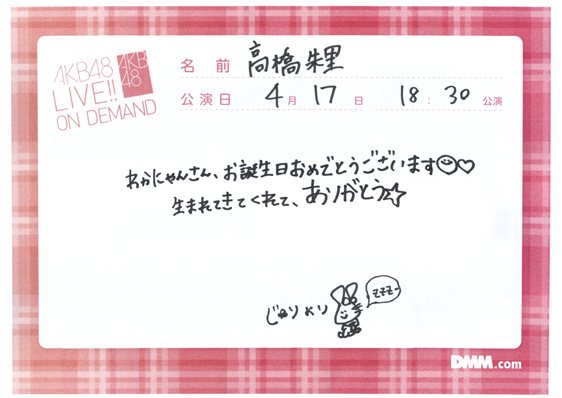 AKB48
LIVE!!
ON DEMAND
AKB
48
名前 高橋朱里
公演日 4月17日 18:30公演
わかにゃんさん、お誕生日おめでとうございます☺♡
生まれてきてくれて、ありがとう☆
じゅりより
zzz~
DMM.com